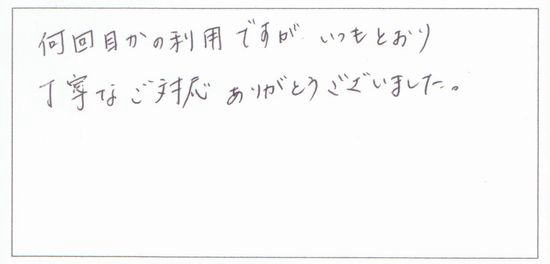 何回目かの利用ですが いつもとおり
丁寧なご対応 ありがとうございました。